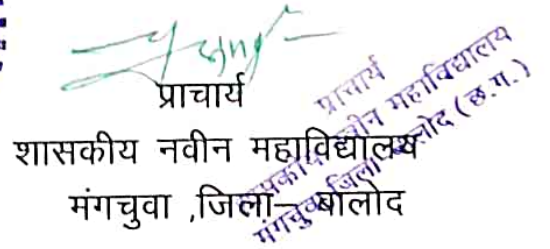 प्राचार्य
शासकीय नवीन महाविद्यालय
मंगचुवा ,जिला– बालोद
प्राचार्य
शासकीय नवीन महाविद्यालय
मंगचुवा जिला बालोद (छ.ग.)